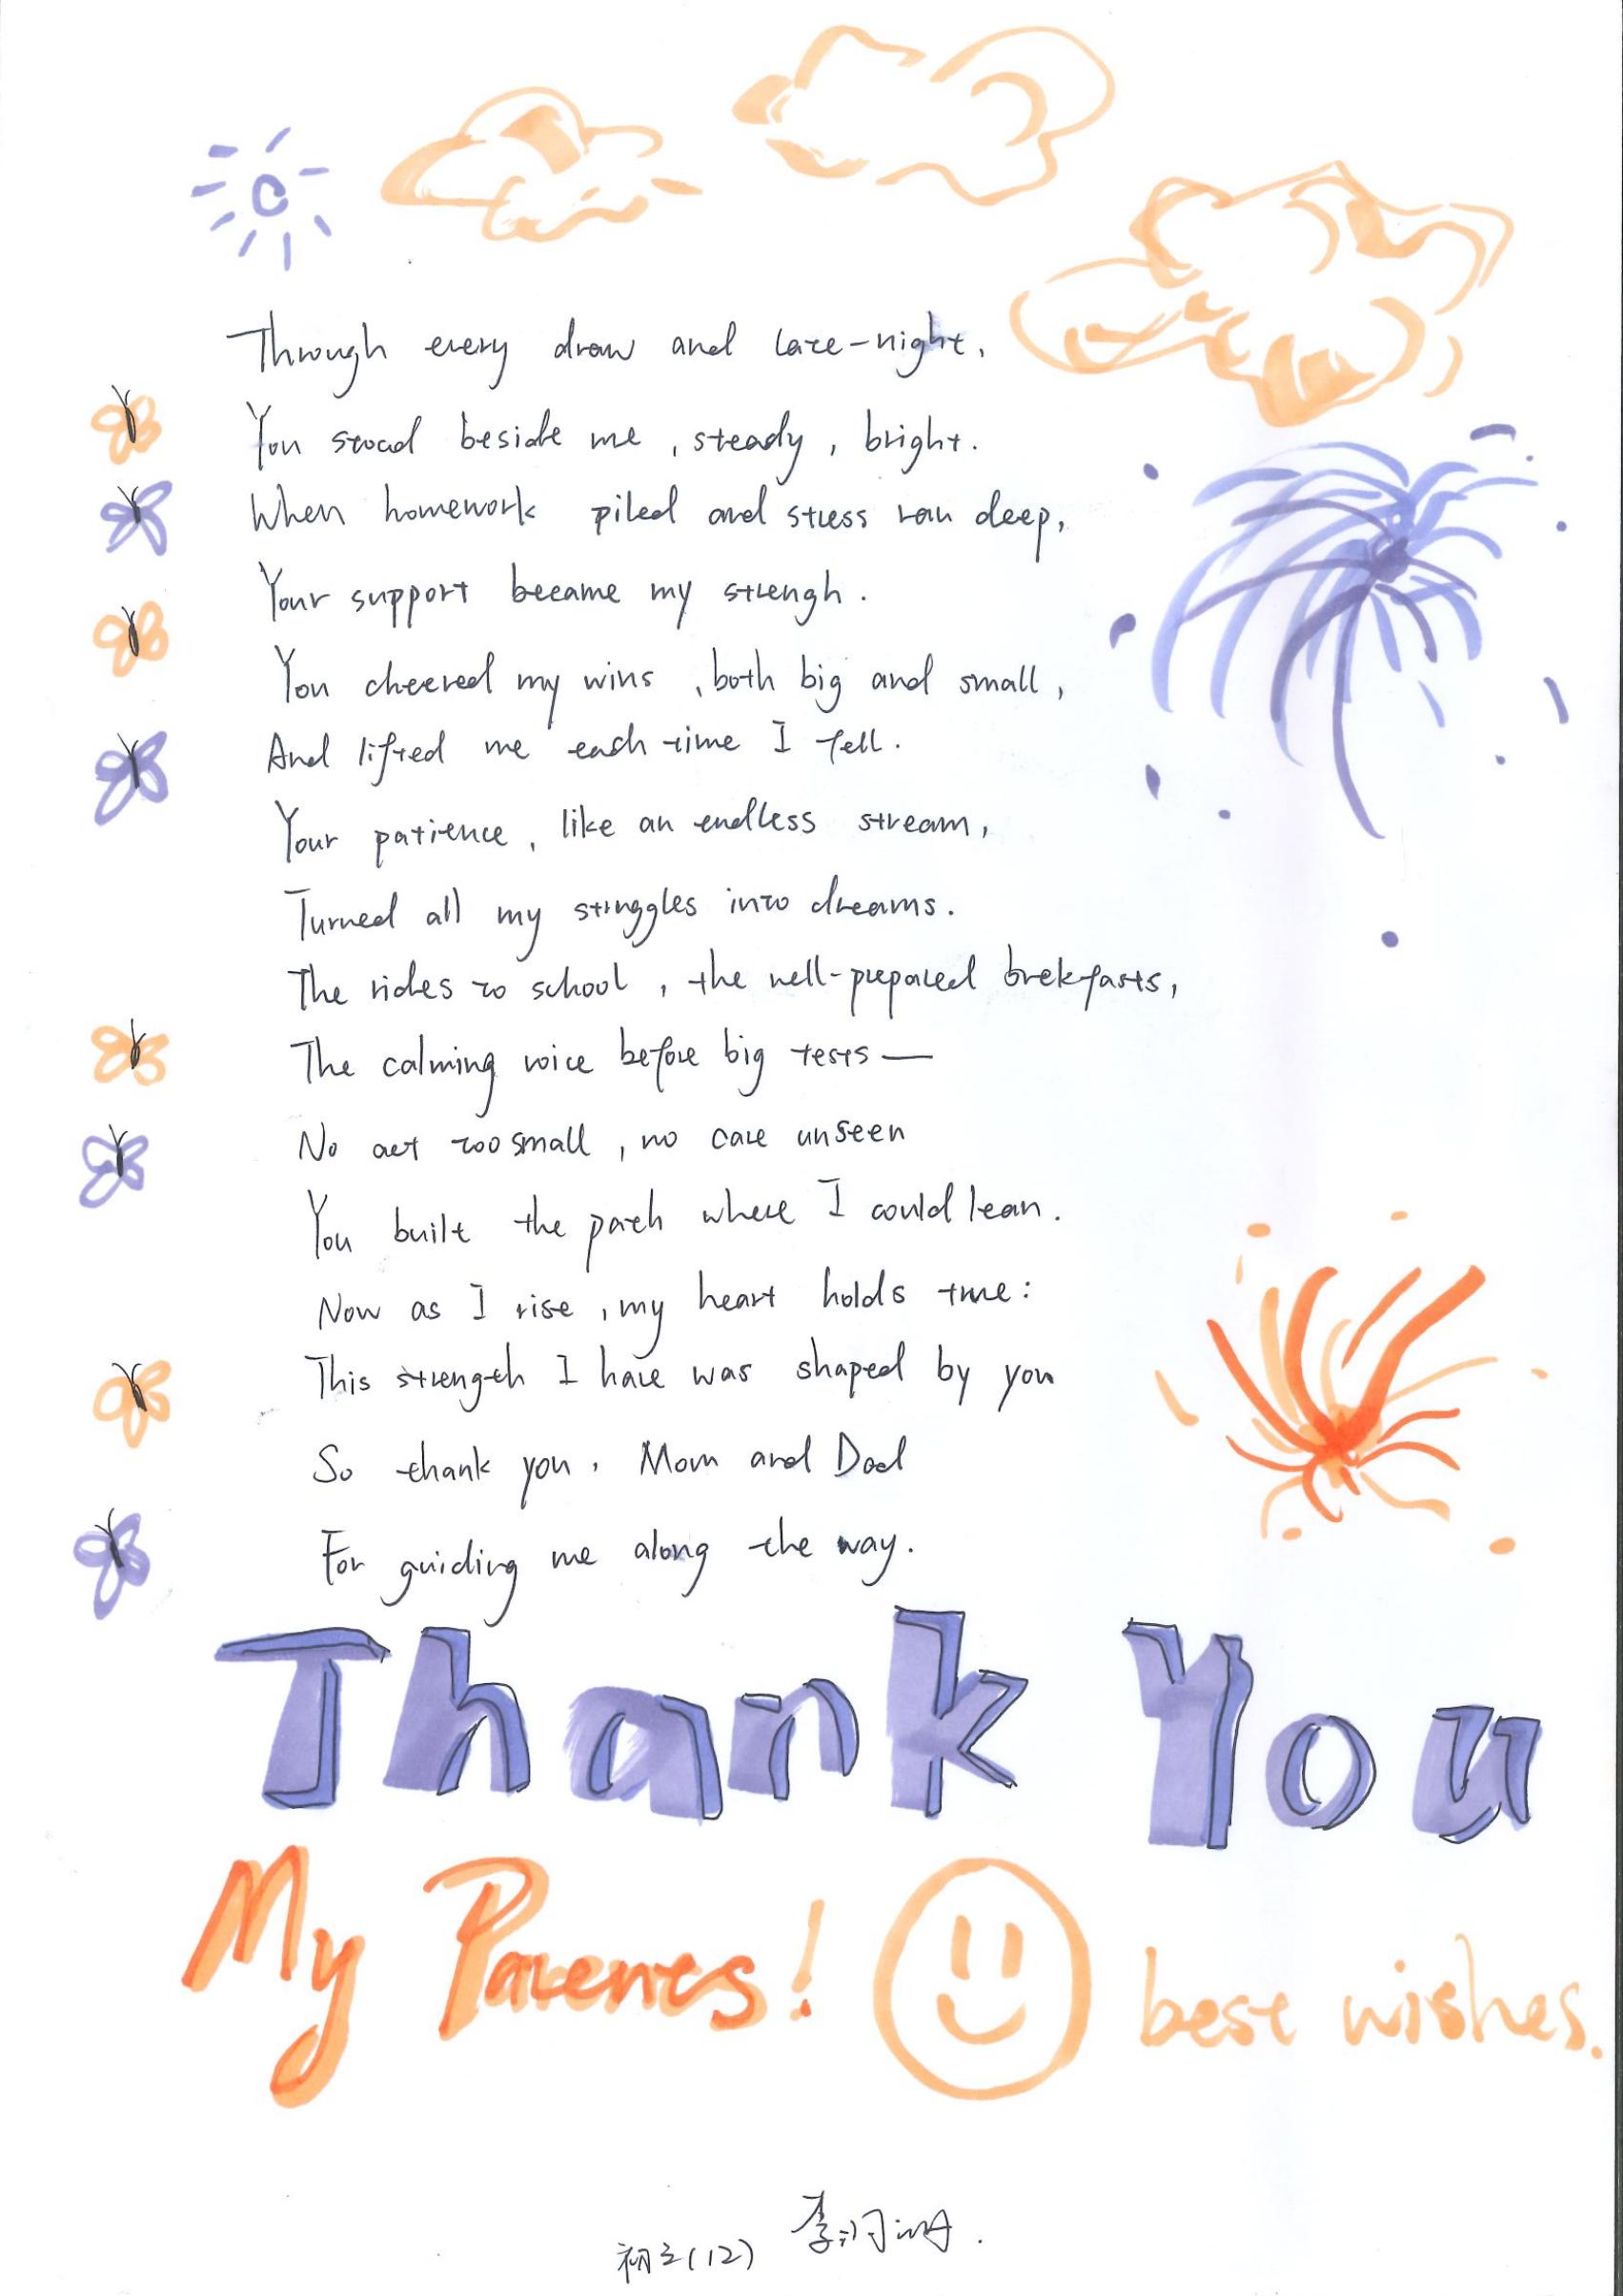 Through every draw and late-night,
You stood beside me, steady, bright.
When homework piled and stress ran deep,
Your support became my strengh.
You cheered my wins, both big and small,
And lifted me each time I fell.
Your patience, like an endless stream,
Turned all my struggles into dreams.
The rides to school, the well-prepared brekfasts,
The calming voice before big tests—
No act too small, no care unseen
You built the path where I could lean.
Now as I rise, my heart holds true:
This strength I have was shaped by you
So thank you, Mom and Dad
For guiding me along the way.
Thank You
My Parents!
best wishes.
李
初三(12)